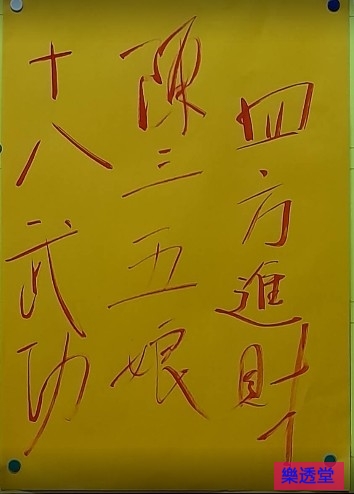 四方進財
陳三五娘
十八武功
樂透堂